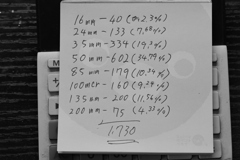 16mm - 40 (2.3%)
24mm - 133 (7.68%)
35mm - 334 (19.3%)
50mm - 602 (34.79%)
85mm - 179 (10.34%)
100mm - 160 (9.24%)
135mm - 200 (11.56%)
200mm - 75 (4.33%)
1.730